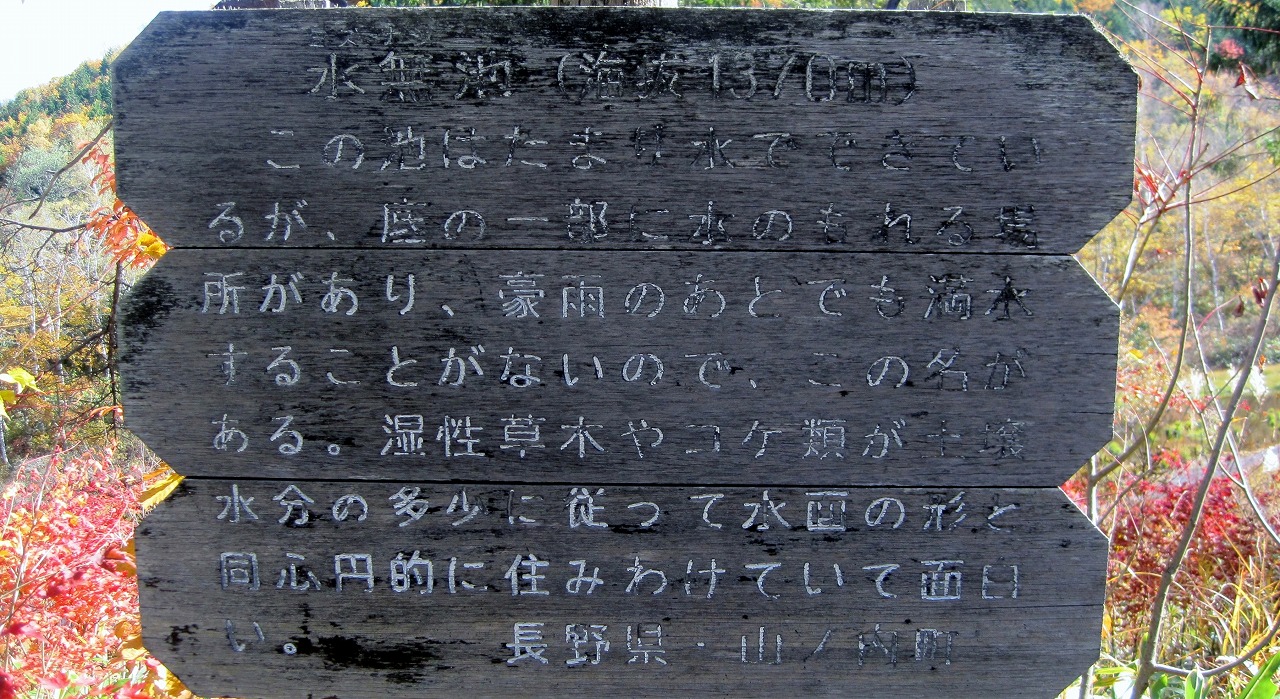 ミズナシ
水無池(海抜1370m)
この池はたまり水でできてい
るが、底の一部に水のもれる場
所があり、豪雨のあとでも満水
することがないので、この名が
ある。湿性草木やコケ類が土壌
水分の多少に従って水面の形と
同心円的に住みわけていて面白
い。 長野県・山ノ内町